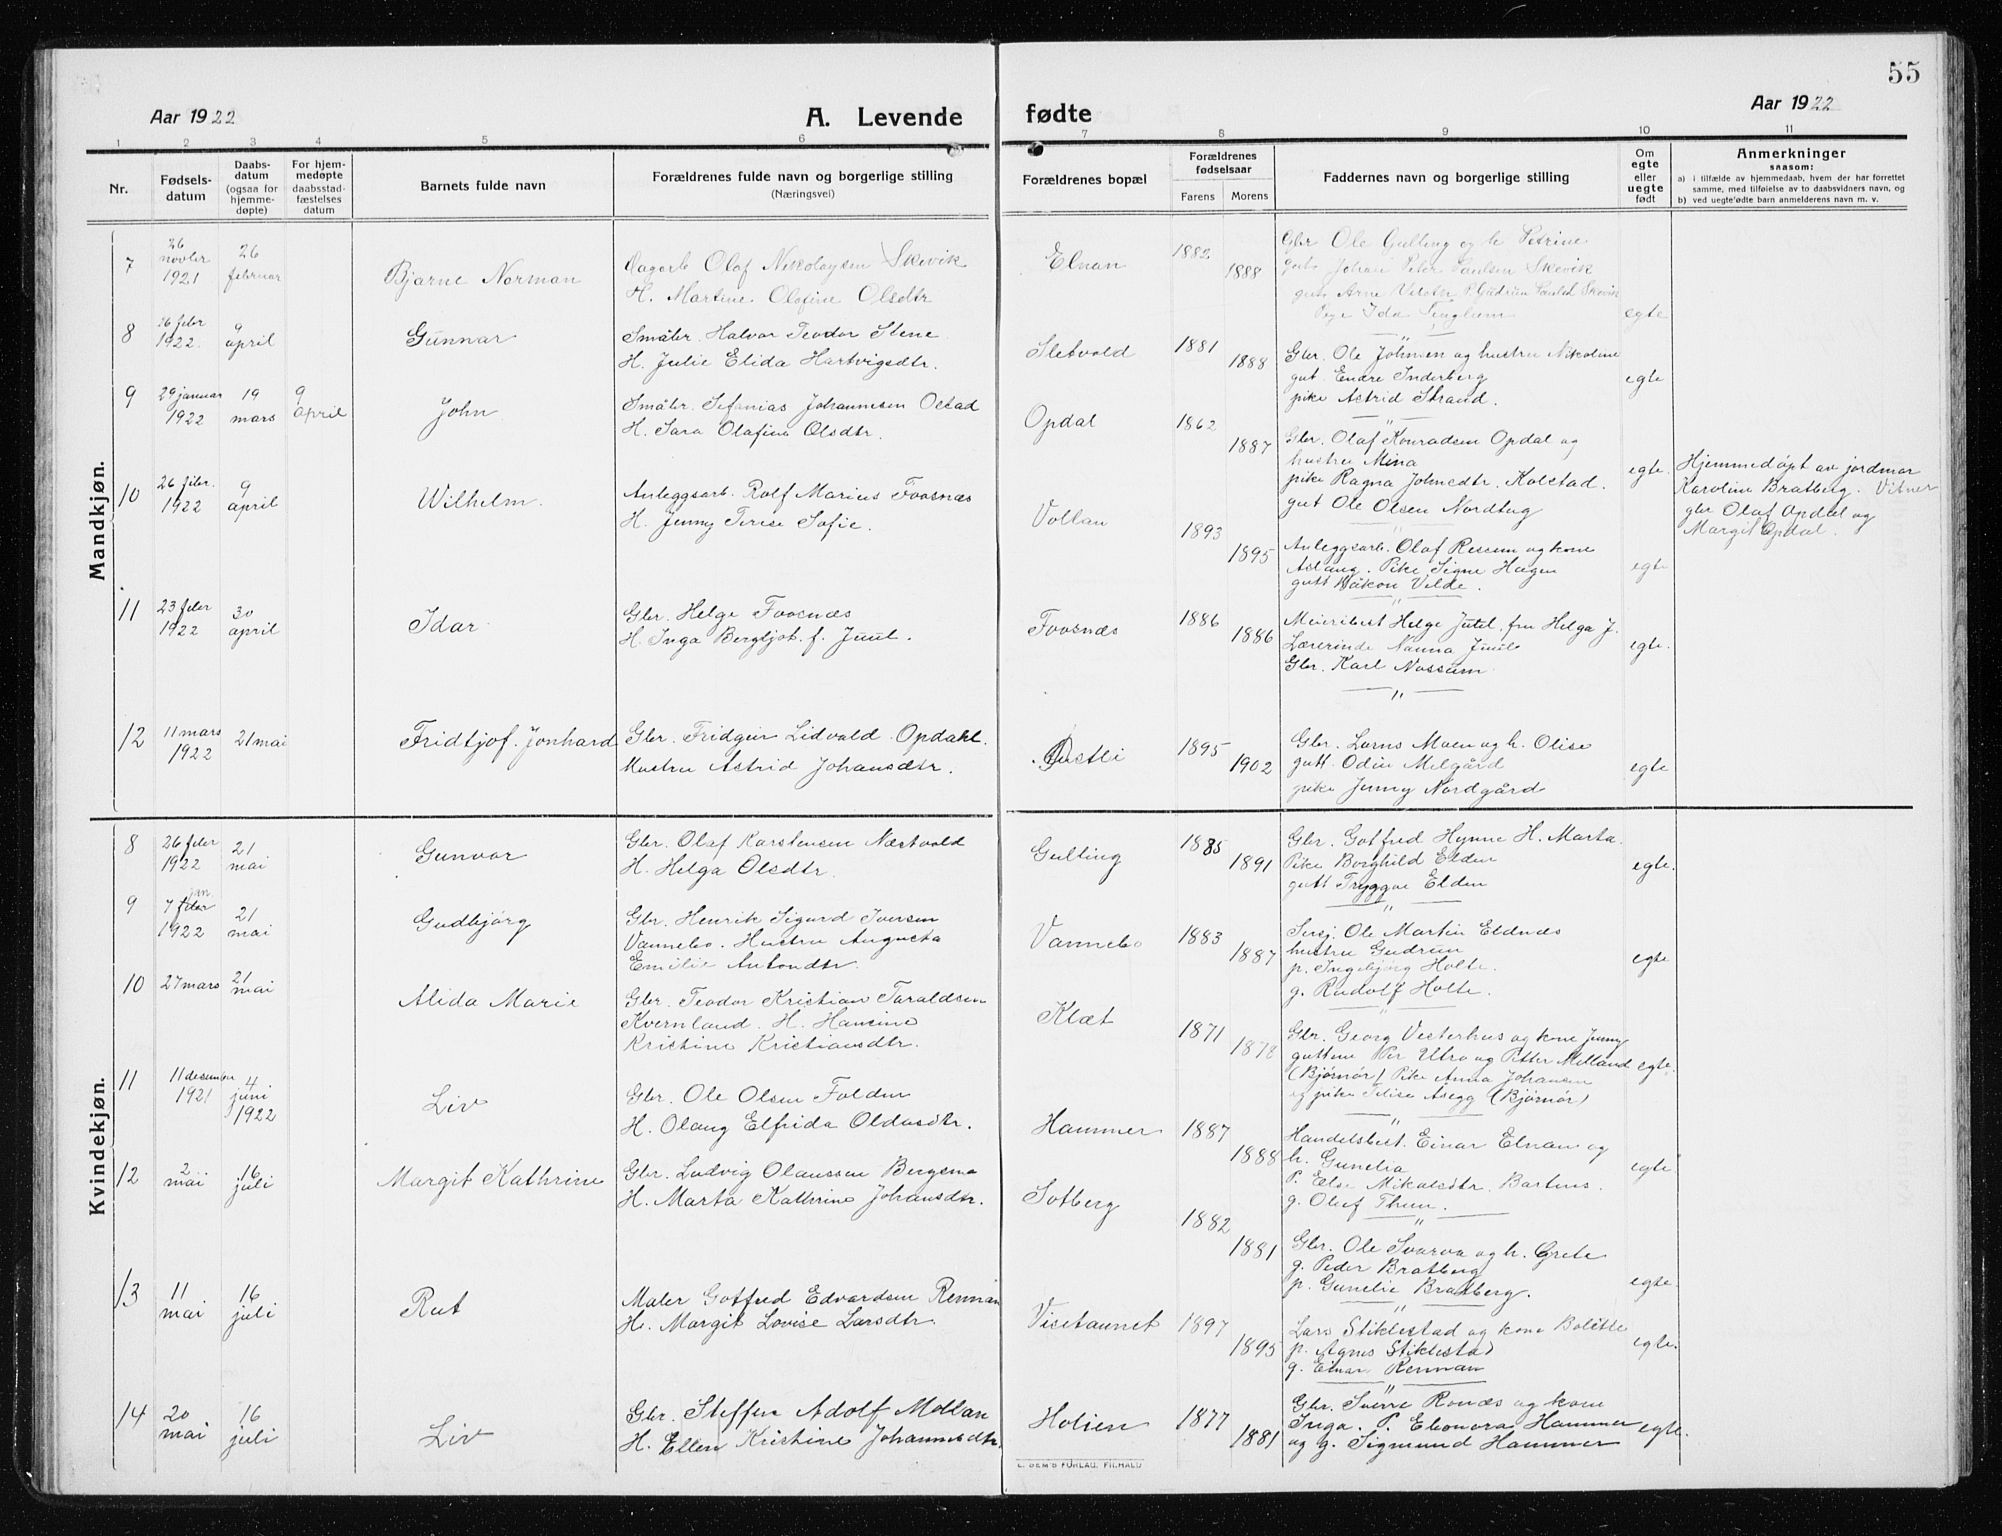 55
Aar 1922
A. Levende
fødte
Aar 1922
1 2 3 4 5 6 7 8 9 10 11
Nr.
Fødsels-
datum
Daabs-
datum
(ogsaa for
hjemme-
døpte)
For hjem-
medøpte
daabsstad-
fæstelses
datum
Barnets fulde navn
Forældrenes fulde navn og borgerlige stilling
(Næringsvei)
Forældrenes bopæl
Forældrenes
fødselsaar
Farens Morens
Faddernes navn og borgerlige stilling
Om
egte
eller
uegte
født
Anmerkninger
saasom:
a) i tilfælde av hjemmedaab, hvem der har forrettet
samme, med tilføielse av to daabsvidners navn, og
b) ved uegte fødte barn anmelderens navn m. v.
Mandkjøn.
7
26
novber
1921
26
februar
Bjarne Norman
Dagarb Olaf Nikolaysen Skevik
H. Martine Olafine Olsdtr
Elnan
1883
1888
Gbr Ole Gulling og h Petrine
gut Johan Peter Paulsen Skevik
Pige Ida
egte
8
16 feber
1922
9
april
Gunnar
Småbr. Halvor Teodor Stene
H. Julie Elida Hartvigsdtr.
Sletvold
1881
1888
Gbr. Ole Johnsen og hustru Nikoline
gut. Endre Inderberg
pike Astrid Strand.
egte
9
29 januar
1922
19
mars
9
april
John
Småbr. Sefanias Johannesen Ostad
H. Sara Olafine Olsdtr.
Opdal
1862
1887
Gbr. Olaf Konradsen Opdal og
hustru Mina
pike Ragna Johnsdtr. Kolstad.
gut Ole Olsen Nordtug
egte.
Hjemmedøpt av jordmor
Karoline Bratberg. Vitner
gbr Olaf Opdal og
Margit Opdal.
10
26 feber.
1922
9
april
Wilhelm.
Anleggsarb. Rolf Marius Fosnæs
H. Jenny Terese Sofie.
Vollan
1893
1895
Anleggsarb. Olaf Ressem og kone
Aslaug. Pike Signe Hagen
gutt Håkon Velde.
egte
11
23 feber
1922
30
april
Idar
Gbr. Helge Foosnæs
H. Inga Bergljot. f. Juul.
Foosnæs
1886
1886
Meieribest Helge Juul. fru Helga J.
Lærerinde Nanna Juul
Gbr. Karl Nossum.
egte.
12
11 mars
1922
21 mai
Fridtjof Jonhard
Gbr. Fridgeir Lidvald Opdahl.
Hustru Astrid Johansdtr.
Østli
1895
1902
Gbr. Lorns Moen og h. Olise
gutt. Odin Melgård
pike Jenny Nordgård
egte
Kvindekjøn.
8
26 feber
1922
21
mai
Gunvor
Gbr. Olaf Karstensen Næstvold
H. Helga Olsdtr.
Gulling
1885
1891
Gbr. Gotfred Hynne H. Marta.
Pike Borghild Elden
gutt Tryggve Elden
egte.
9
jan
7 feber
1922
21
mai
Gudbjørg
Gbr. Henrik Sigurd Iversen
Vannebo. Hustru Augusta
Emilie Antondtr.
Vannebo
1883
1887
Sersj. Ole Martin Eldnæs
hustru Gudrun
p. Ingebjørg Holte.
g. Rudolf Holte.
egte
10
27 mars
21
mai
Alida Marie
Gbr. Teodor Kristian Taraldsen
Kvernland. H. Hansine
Kristine Kristiansdtr.
Klæt
1871
1878
Gbr. Georg Vesterhus og kone Jenny
guttene Per Utro og Petter Melland
(Bjørnør) Pike Anna Johansen
og pike Telise Asegg (Bjørnør)
egte.
11
11 december
1921
4
juni
1922
Liv
Gbr. Ole Olsen Folden
H. Olaug Elfrida Oldasdtr.
Hammer
1887
1888
Handelsbest. Einar Elnan og
h. Gunelia
P. Else Mikalsdtr. Bartnes.
g. Oluf Thun.
egte
12
2
mai
16
juli
Margit Kathrine
Gbr. Ludvig Olaussen Bergsmo
H. Marta Kathrine Johansdtr.
Sotberg
1882
1881
Gbr. Ole Svarva og h. Grete
g. Peder Bratberg
p. Gunelie Bratberg.
egte.
13
11
mai
16
juli
Rut
Maler Gotfred Edvardsen Renman
H. Margit Lovise Larsdtr.
Visttaunet
1897
1895
Lars Stiklestad og kone Bolette
p. Agnes Stiklestad
g. Einar Renman
egte.
14
20
mai
16
juli
Liv
Gbr. Steffen Adolf Mollan
H. Ellen Kristine Johannesdtr.
Holien
1877
1881
Gbr. Sverre Ronæs og kone
Inga. P. Eleonora Hammer
og g. Sigmund Hammer
egte.